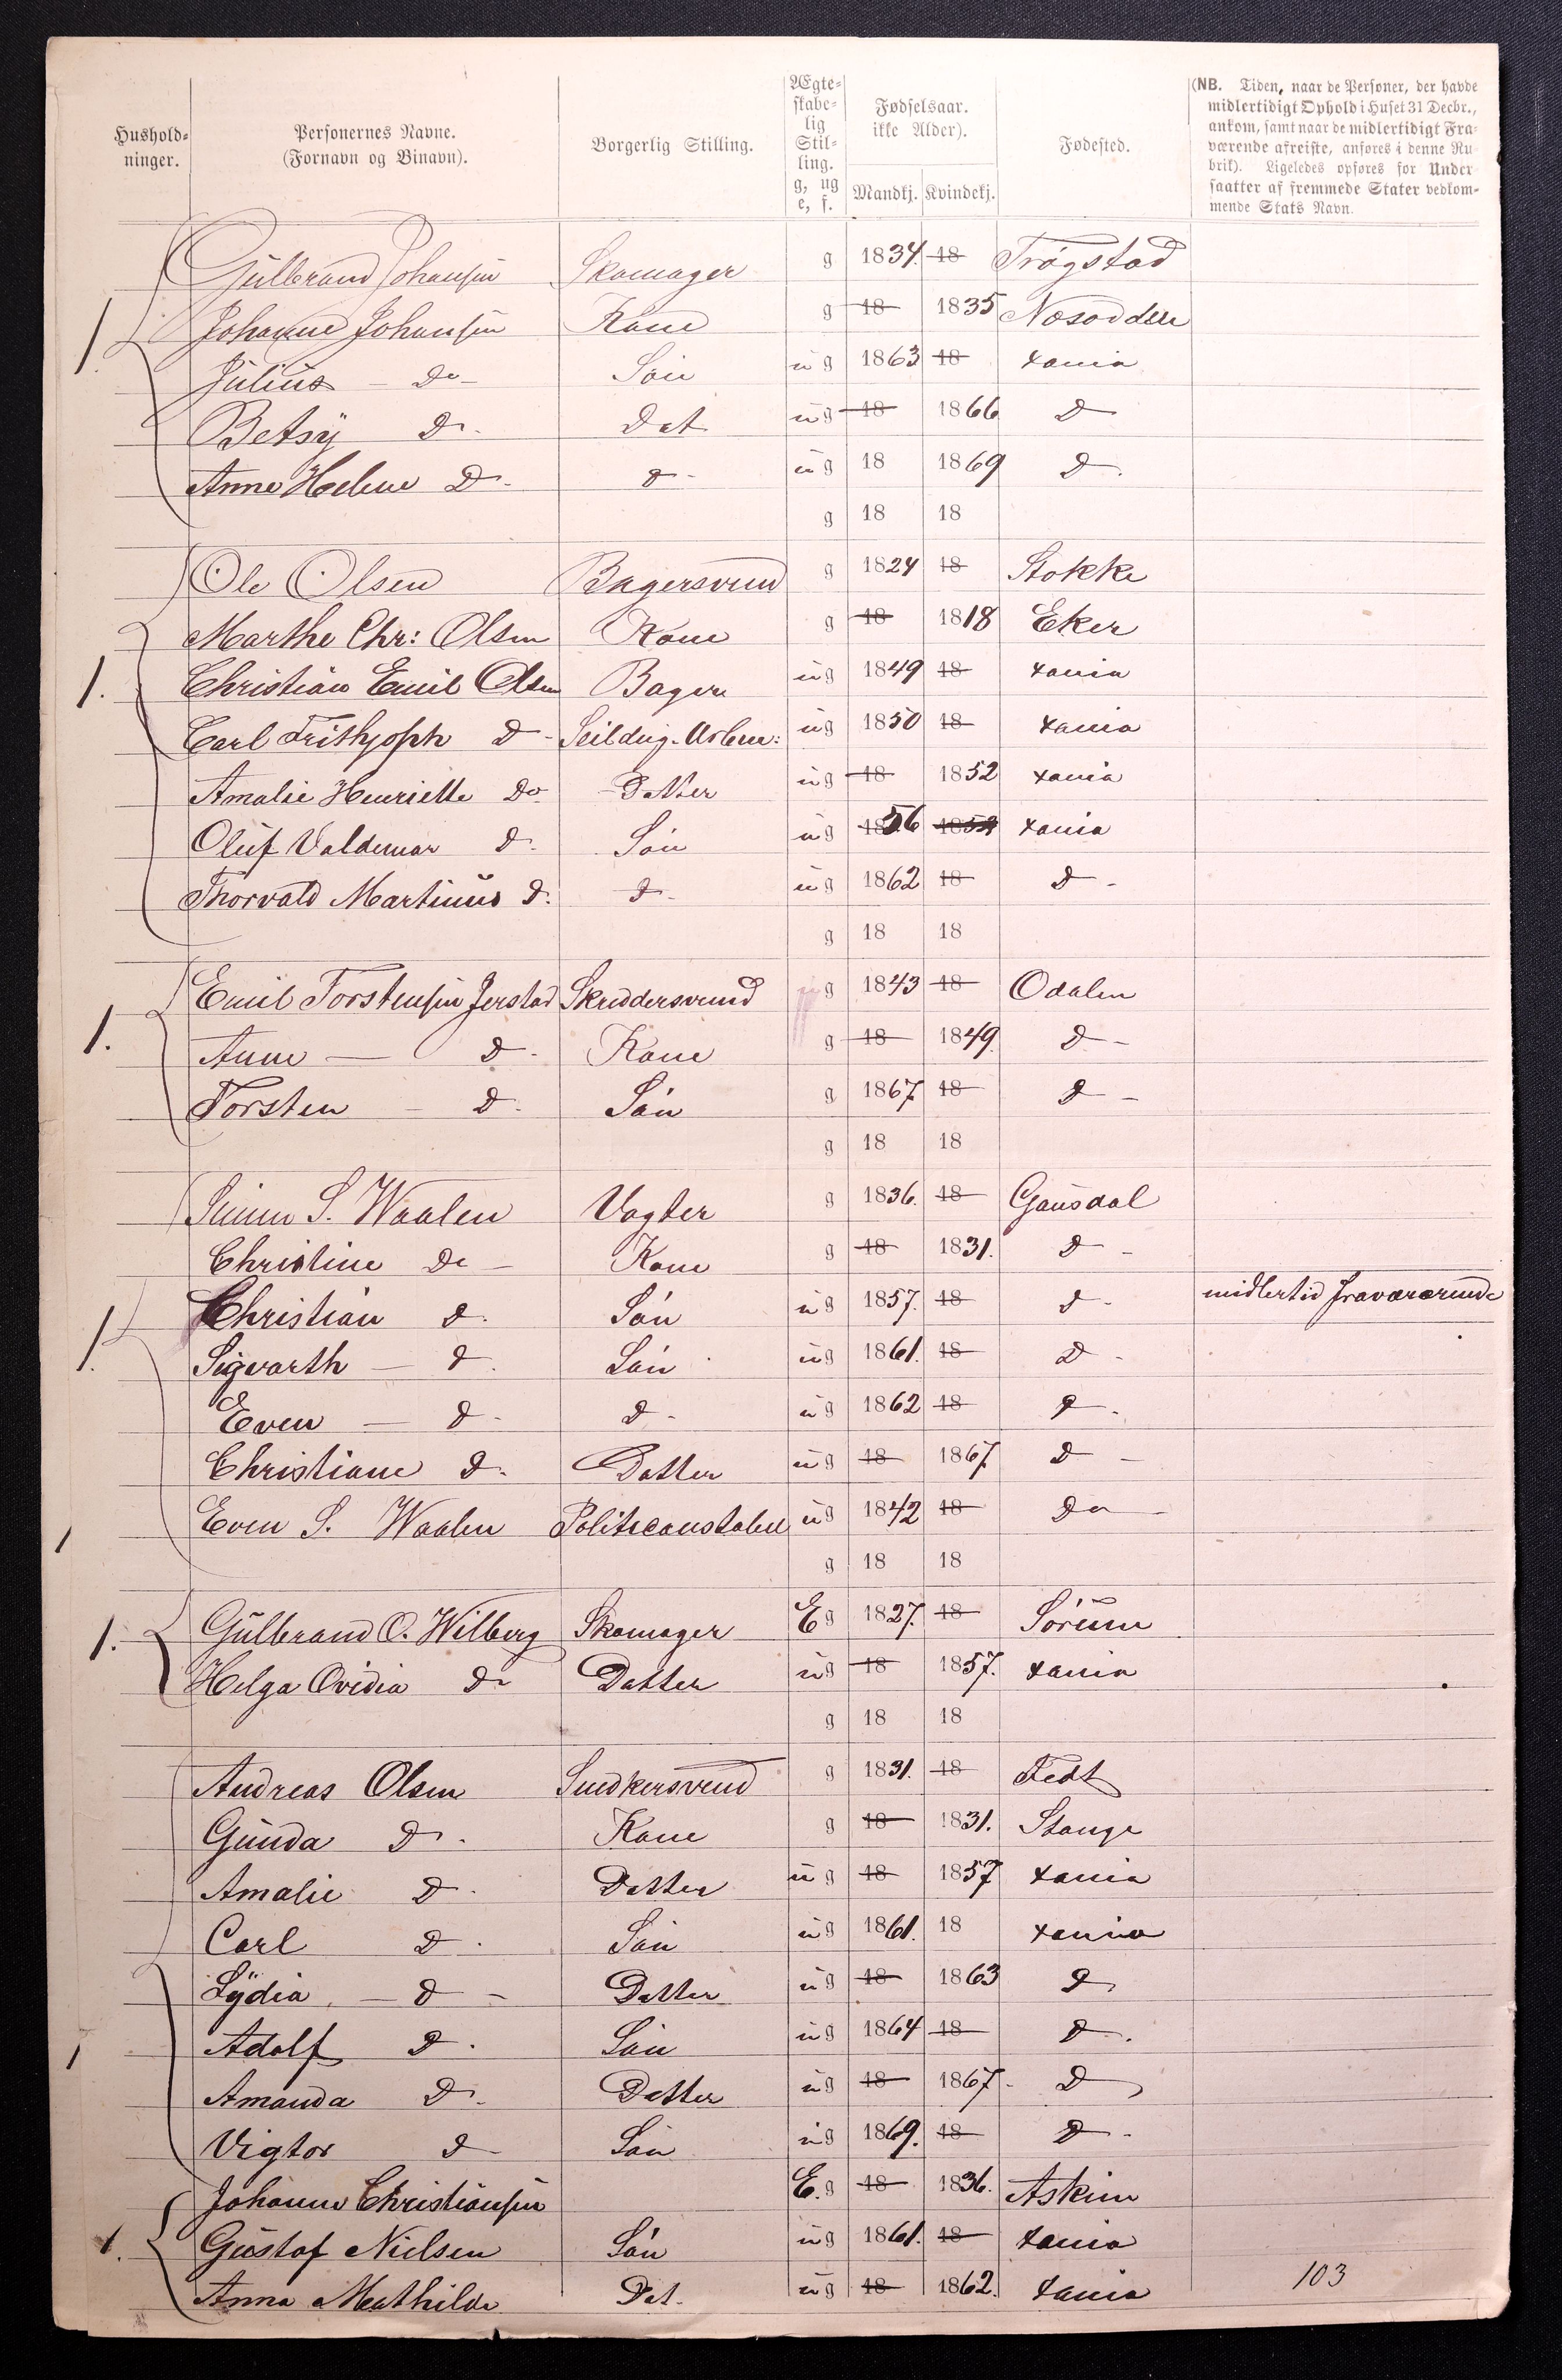 Hushold-
ninger.
Personernes Navne.
(Fornavn og Binavn).
Borgerlig Stilling.
Ægte-
skabe-
lig
Stil-
ling.
g, ug
e, f.
Fødselsaar.
ikke Alder).
Mandkj. Kvindekj.
Fødested.
(NB. Tiden, naar de Personer, der havde
midlertidigt Ophold i Huset 31 Decbr.,
ankom, samt naar de midlertidigt Fra-
værende afreiste, anføres i denne Ru-
brik). Ligeledes opføres for Under-
saatter af fremmede Stater vedkom-
mende Stats Navn.
Gulbrand Johansen Skomager g 1834. 18 Trøgstad
1 Johanne Johansen Kone g 18 1835 Nesodden
Julius - Do - Søn ug 1863 18 Xania
Betsy D. Dat ug 18 1866 D
Anne Helene D. D ug 18 1869 D.
g 18 18
Ole Olsen Bagersvend g 1824 18 Stokke
Marthe Chr: Olsen Kone g 18 1818 Eker
1. Christian Emil Olsen Bager ug 1849 18 Xania
Carl Frithjoph D - Seildug. Arbeid: ug 1850 18 Xania
Amalie Henriette Do Datter ug 18 1852 Xania
Oluf Valdemar D. Søn ug 1856 Xania
Thorvald Martinius D. D ug 1862 18 D -
g 18 18
Emil Torstensen Jerstad Skreddersvend ug 1843 18 Odalen
1. Anne — D. Kone g 18 1849 D -
Torsten - D. Søn g 1867 18 D -
g 18 18
Simen S. Waalen Vagter g 1836. 18 Gausdal
Christine Do - Kone g 18 1831. D -
1. Christian D. Søn ug 1857. 18 D - midlertid fraværerende
Sigvarth — D. Søn ug 1861. 18 D -
Even — D. D. ug 1862 18 D.
Christiane D. Datter ug 18 1867 D -
1 Even S. Waalen Politiconstabel ug 1842 18 Do
g 18 18
1. Gulbrand O. Wilberg Skomager Eg 1827. 18 Sørum
Helga Ovidia Do Datter ug 18 1857. Xania
g 18 18
Andreas Olsen Snedkersvend g 1831. 18 Fedt
Gunda D. Kone g 18 1831. Stange
Amalie D. Datter ug 18 1857 Xania
Carl D. Søn ug 1861. 18 Xania
Lydia - D - Datter ug 18 1863 D
1 Adolf D. Søn ug 1864 18 D.
Amanda D. Datter ug 18 1867. D
Vigtor D Søn ug 1869. 18 D.
Johanne Christiansen E.g 18 1836. Askim
1. Gustaf Nielsen Søn ug 1861. 18 Xania
Anna Mathilde Dat. ug 18 1862. Xania
103